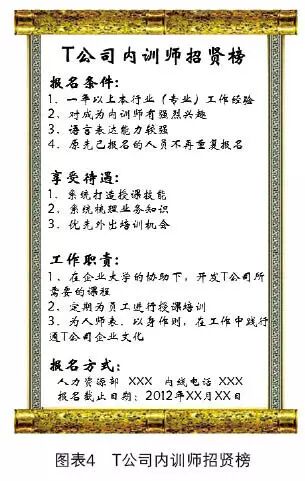 T公司内训师招贤榜
报名条件：
1、一年以上本行业（专业）工作经验
2、对成为内训师有强烈兴趣
3、语言表达能力较强
4、原先已报名的人员不再重复报名
享受待遇：
1、系统打造授课技能
2、系统梳理业务知识
3、优先外出培训机会
工作职责：
1、在企业大学的协助下，开发T公司所
需要的课程
2、定期为员工进行授课培训
3、为人师表，以身作则，在工作中践行
通T公司企业文化
报名方式：
人力资源部 XXX 内线电话 XXX
报名截止日期：2012年XX月XX日
图表4 T公司内训师招贤榜